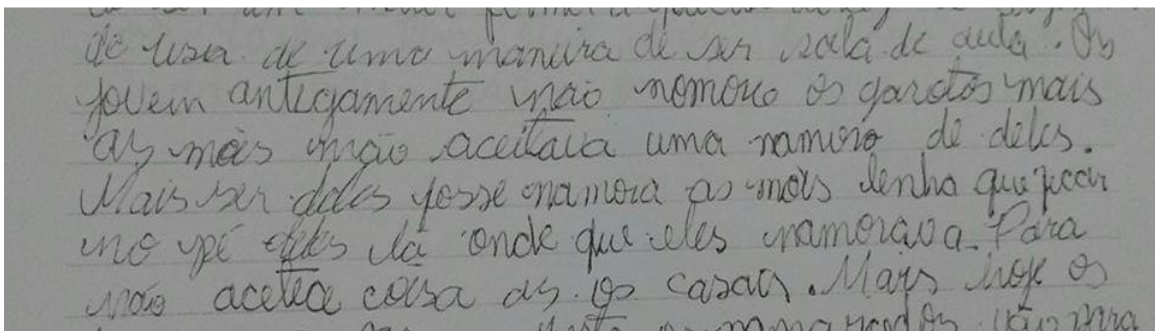 de usa. de uma maneira de ser sala de aula. Os
jovem antigamente não nomoro os garotos mais
as mães não aceitava uma namoro de deles.
Mais ser deles fosse namora as mães tenha que ficar
no pé deles lá onde que eles namorava. Para
não acetece coisa as os casais. Mais hoje os